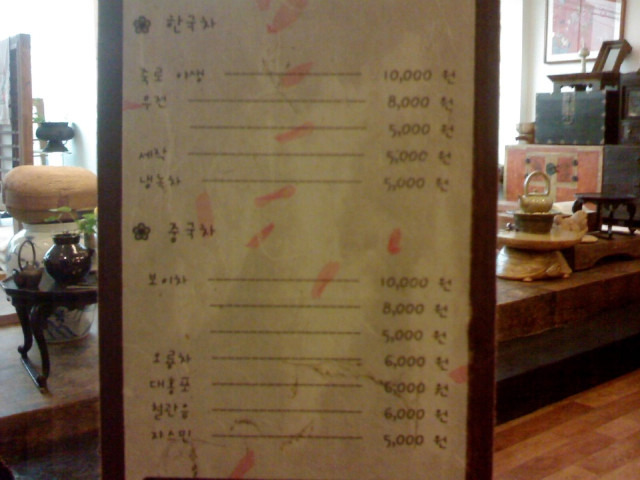 한국차
죽로 야생 10,000 원
우전 8,000 원
5,000 원
세작 5,000 원
냉녹차 5,000 원
중국차
보이차 10,000 원
8,000 원
5,000 원
오룡차 6,000 원
대홍포 6,000 원
철관음 6,000 원
자스민 5,000 원